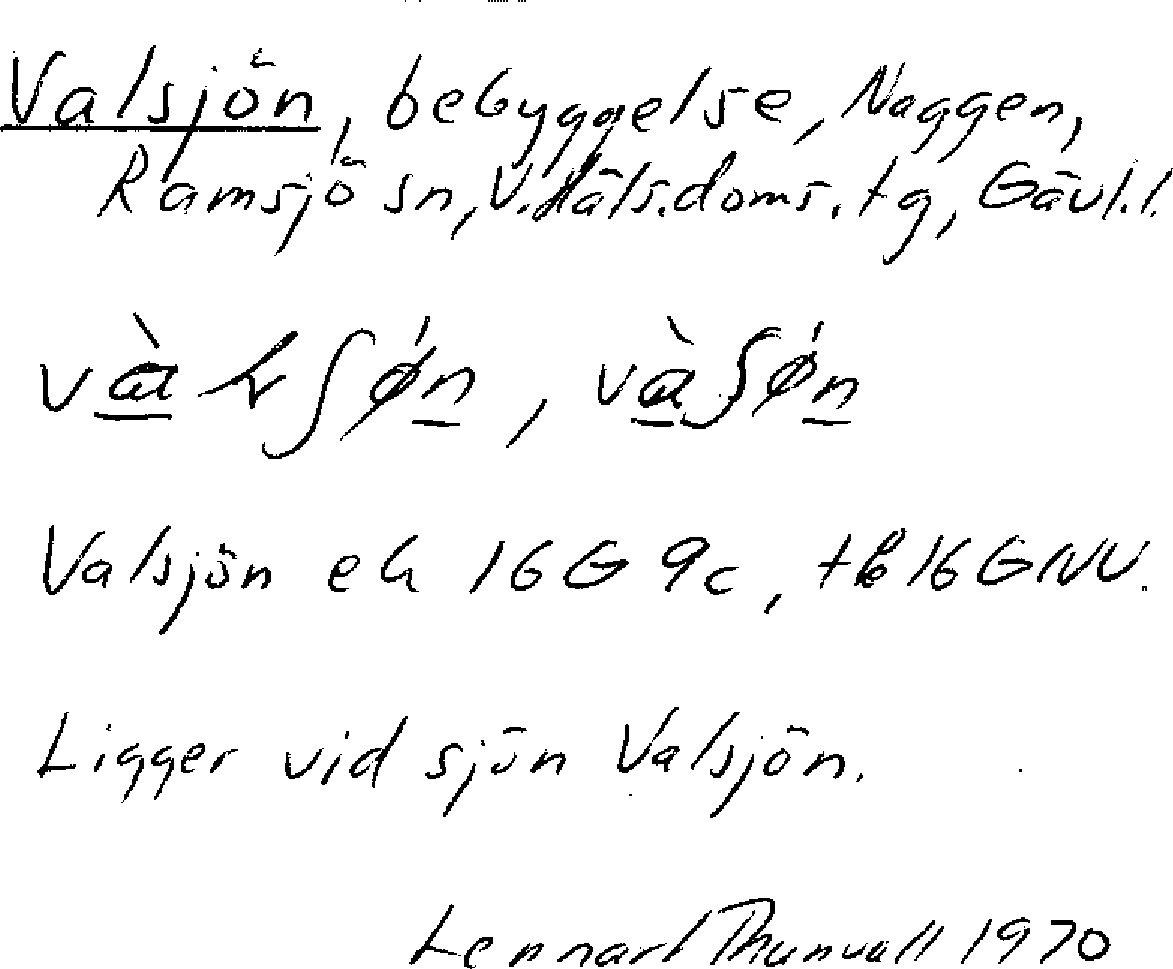 Valsjön, bebyggelse, Naggen,
Ramsjö sn, V. Häls. doms. tg, Gävl. l.
Valsjön ek 16 G 9c, tk 16 G NV.
Ligger vid sjön Valsjön.
Lennart Thunvall 1970